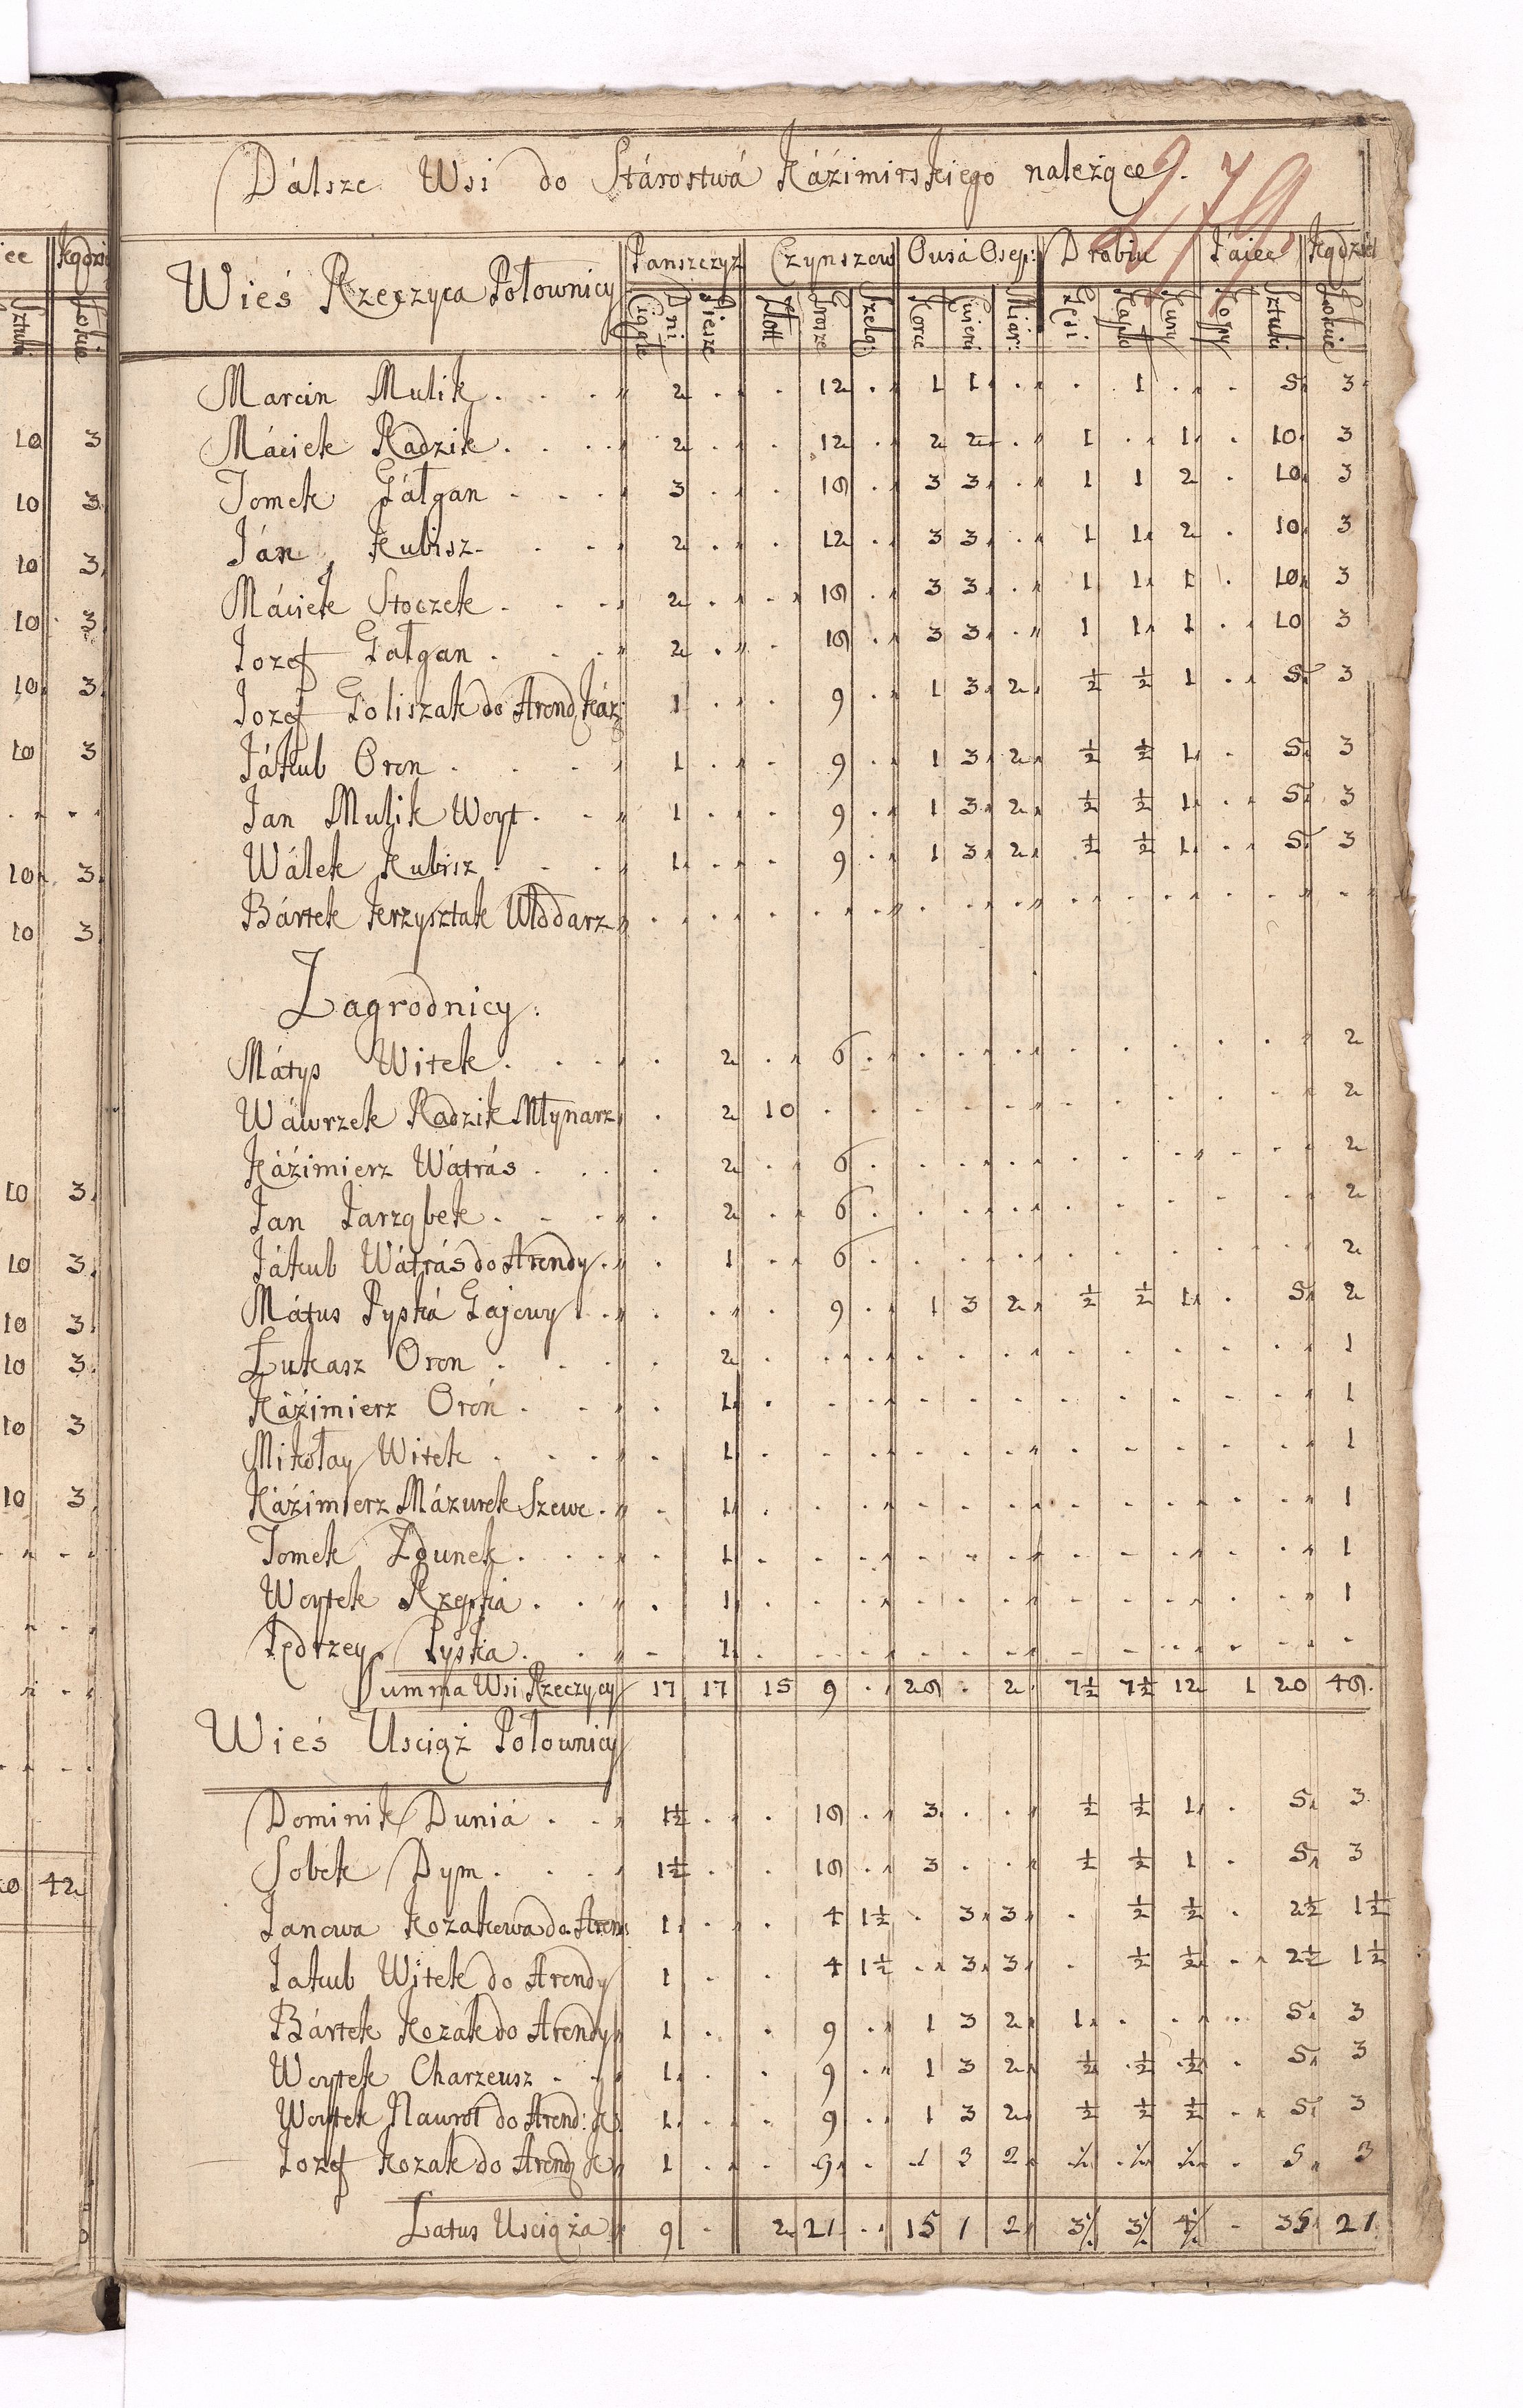 ec Jędzi
Sztuki Łokcie
10 3
10 3
10 3
10 3
10 3
10 3
10 3
10 3
10 3
10 3
10 3
10 3
10 3
10 3
42
Dálsze Wsi do Stárostwá Káźimirskiego należące.
279
Wieś Rzeczyca Połownicy Panszczyz Czynszow Owsá Osep: Drobiu Jáiec Jędzie
Dni Ciągłe Piesze Złott Grosze Szelą: Korce Cwierci Miár: Gęsi Kapło Kury Kopy Sztuki Łokcie
Marcin Mulik . . . 2 . . . 12 . 1 1 . . 1 . . 5 3
Máciek Radzik . . . 2 . . . 12 . 2 2 . 1 . 1 . 10 3
Tomek Gáłgan . . . 3 . . . 16 . 3 3 . 1 1 2 . 10 3
Ján Kubisz . . . 2 . . . 12 . 3 3 . 1 1 2 . 10 3
Máciek Stoczek . . . 2 . . . 16 . 3 3 . 1 1 1 . 10 3
Jozef Gałgan . . . 2 . . . 16 . 3 3 . 1 1 1 . 10 3
Jozef Goliszak do Arend Káź: 1 . . . 9 . 1 3 2 ½ ½ 1 . 5 3
Jákub Oron . . . 1 . . . 9 . 1 3 2 ½ ½ 1 . 5 3
Jan Mulik Woyt . . 1 . . . 9 . 1 3 2 ½ ½ 1 . 5 3
Wálek Kubisz . . . 1 . . . 9 . 1 3 2 ½ ½ 1 . 5 3
Bártek Krzysztak Włodarz . . . . . . . . . . . . . . .
Zagrodnicy:
Mátys Witek . . . . 2 . 6 . . . . . . . . . 2
Wáwrzek Radzik Młynarz . 2 10 . . . . . . . . . . 2
Káźimierz Wátrás . . . 2 . 6 . . . . . . . . . 2
Jan Jarząbek . . . . 2 . 6 . . . . . . . . . 2
Jákub Wátrás do Arendy . . 1 . 6 . . . . . . . . . 2
Mátus Pyská Gajowy . . . . . 9 . 1 3 2 ½ ½ 1 . 5 2
Łukasz Oron . . . . 2 . . . . . . . . . . . 1
Káźimierz Oroń . . . 1 . . . . . . . . . . . 1
Mikołay Witek . . . . 1 . . . . . . . . . . . 1
Káźimierz Mázurek Szewc . . 1 . . . . . . . . . . . 1
Tomek Zdunek . . . . 1 . . . . . . . . . . . 1
Woytek Rzepka . . . 1 . . . . . . . . . . . 1
Jędrzey Pyska . . . 1 . . . . . . . . . . . .
Summa Wsi Rzeczycy 17 17 15 9 . 26 . 2 7½ 7½ 12 1 20 46
Wieś Usciąż Połownicy
Dominik Duniá . . 1½ . . . 16 . 3 . . ½ ½ 1 . 5 3
Sobek Dym . . . 1½ . . 16 . 3 . . ½ ½ 1 . 5 3
Janowa Kozakowa do Aren: 1 . . . 4 1½ . 3 3 . ½ ½ . 2½ 1½
Jakub Witek do Arendy 1 . . 4 1½ . 3 3 . ½ ½ . 2½ 1½
Bártek Kozák do Arendy 1 . . 9 . 1 3 2 1 . . . 5 3
Woytek Charzeusz . . 1 . . 9 . 1 3 2 ½ ½ ½ . 5 3
Woytek Nawrot do Arend: K 1 . . 9 . 1 3 2 ½ ½ ½ . 5 3
Jozef Kozak do Arend K 1 . . 9 . 1 3 2 ½ ½ ½ . 5 3
Latus Usciąża 9 . 2 21 . 15 1 2 3½ 3½ 4½ . 35 21